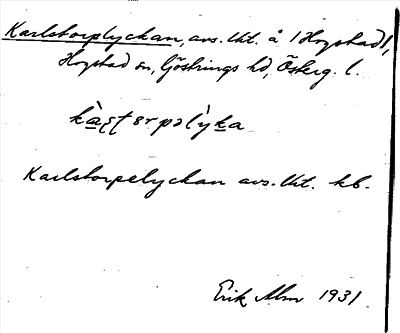 Karlstorplyckan, avs. lht. å 1 Hogstad 1,
Hogstad sn, Göstrings hd, Österg. l.
Karlstorpelyckan avs. lht. hb.
Erik Alm 1931